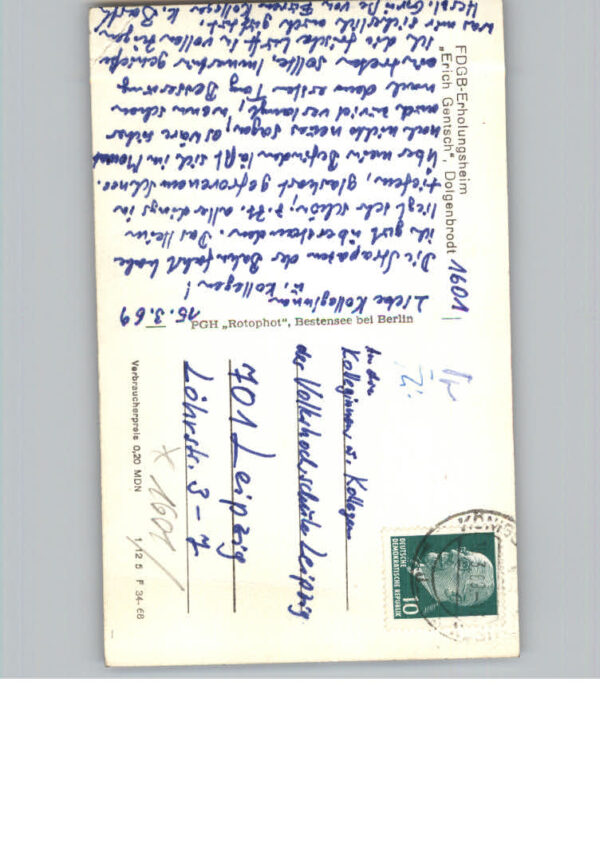 FDGB-Erholungsheim
„Erich Gentsch", Dolgenbrodt
1601
15.3.69
Liebe Kolleginnen
u. Kollegen!
Die Strapazen der Bahnfahrt habe
ich gut überstanden. Das Heim
liegt sehr schön, z. Zt. allerdings in
tiefem, glashart gefrorenem Schnee.
Über mein Befinden läßt sich im Moment
noch nichts neues sagen, es wäre sicher
auch zuviel verlangt, wenn schon
nach dem ersten Tag Besserung
eintreten sollte. Immerhin genieße
ich die frische Luft in vollen Zügen
was mir sicherlich auch guttut.
Herzl. Grüße von Eurem Kollegen K.
PGH „Rotophot", Bestensee bei Berlin
An die
Kolleginnen u. Kollegen
der Volkshochschule Leipzig
701 Leipzig
Löhrstr. 3-7
DEUTSCHE
DEMOKRATISCHE REPUBLIK
10
* 1601 /
Verbraucherpreis 0,20 MDN
1/12 5 F 34-68